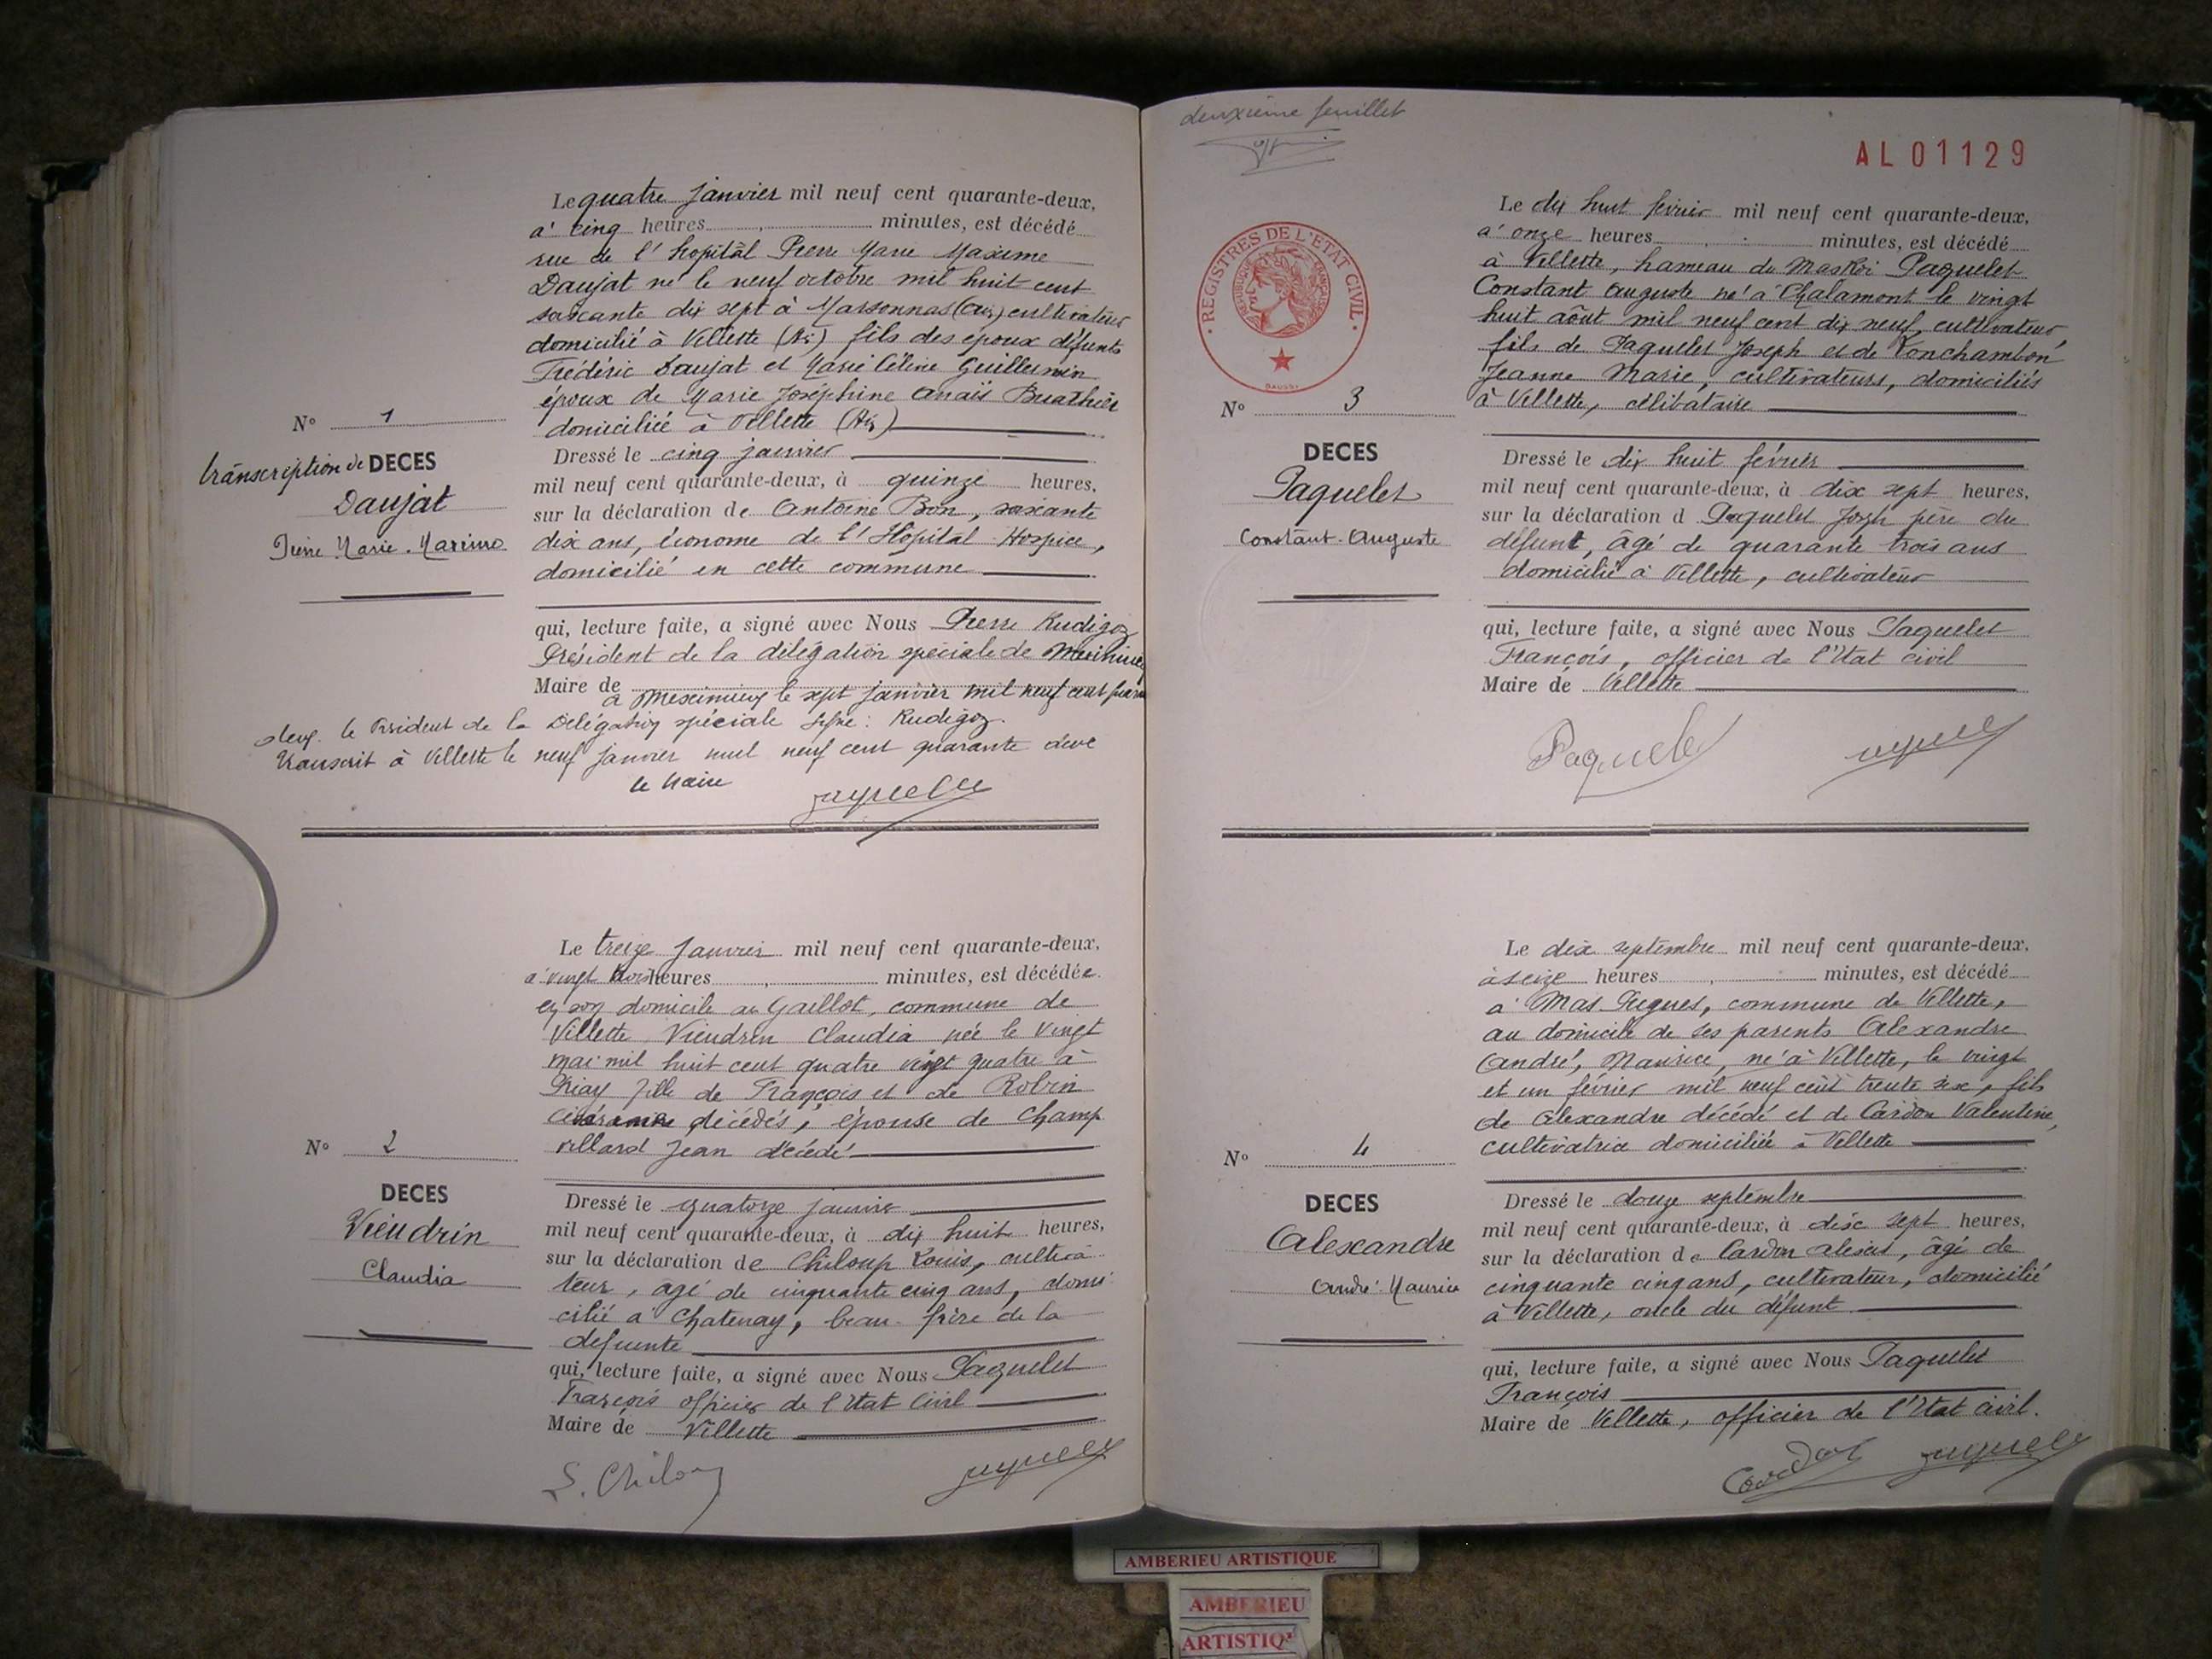 Le quatre janvier mil neuf cent quarante-deux,
à cinq heures minutes, est décédé
rue de l'hopitâl Pierre Marie Maxime
Daujat né le neuf octobre mil huit cent
soixante dix sept à Marsonnas (Ain) cultivateur
domicilié à Villette (Ain) fils des époux défunts
Frédéric Daujat et Marie Céline Guillermin
époux de Marie Joséphine Anaïs Buathier
domiciliée à Villette (Ain)
N° 1
transcription de DECES
Daujat
Pierre Marie-Maxime
Dressé le cinq janvier
mil neuf cent quarante-deux, à quinze heures,
sur la déclaration de Antoine Bon, soixante
dix ans, économe de l'Hôpital-Hospice,
domicilié en cette commune
qui, lecture faite, a signé avec Nous Pierre Rudigoz
Président de la délégation spéciale de Meximieux
Maire de
à Meximieux le sept janvier mil neuf cent quarante
deux. le Président de la Délégation spéciale signé: Rudigoz.
Transcrit à Villette le neuf janvier mil neuf cent quarante deux
le Maire
Le treize Janvier mil neuf cent quarante-deux,
à vingt trois heures minutes, est décédée
en son domicile au Gaillot, commune de
Villette, Vieudrin Claudia née le vingt
mai mil huit cent quatre vingt quatre à
Priay fille de François et de Robin
décédés, épouse de Champ
villard Jean décédé
N° 2
DECES
Vieudrin
Claudia
Dressé le quatorze janvier
mil neuf cent quarante-deux, à dix huit heures,
sur la déclaration de Chiloup Louis, cultiva
teur, âgé de cinquante cinq ans, domi
cilié à Chatenay, beau-frère de la
défunte
qui, lecture faite, a signé avec Nous Paquelet
François officier de l'Etat Civil
Maire de Villette
deuxième feuillet
AL 01129
REGISTRES DE L'ETAT CIVIL
Le dix huit février mil neuf cent quarante-deux,
à onze heures minutes, est décédé
à Villette, hameau du Masroi Paquelet
Constant Auguste né à Chalamont le vingt
huit août mil neuf cent dix neuf, cultivateur,
fils de Paquelet Joseph et de Ronchambon
Jeanne Marie, cultivateurs, domiciliés
à Villette, célibataire
N° 3
DECES
Paquelet
Constant-Auguste
Dressé le dix huit février
mil neuf cent quarante-deux, à dix sept heures,
sur la déclaration d Paquelet Joseph père du
défunt, âgé de quarante trois ans
domicilié à Villette, cultivateur
qui, lecture faite, a signé avec Nous Paquelet
François, officier de l'Etat civil
Maire de Villette
Paquelet
Le dix septembre mil neuf cent quarante-deux,
à seize heures minutes, est décédé
à Mas Pugues, commune de Villette,
au domicile de ses parents Alexandre
André, Maurice, né à Villette, le vingt
et un février mil neuf cent trente six, fils
de Alexandre décédé et de Cardon Valentine,
cultivatrice domiciliée à Villette
N° 4
DECES
Alexandre
André-Maurice
Dressé le douze septembre
mil neuf cent quarante-deux, à dix sept heures,
sur la déclaration de Cardon Alexis, âgé de
cinquante cinq ans, cultivateur, domicilié
à Villette, oncle du défunt
qui, lecture faite, a signé avec Nous Paquelet
François
Maire de Villette, officier de l'Etat civil.
AMBERIEU ARTISTIQUE
AMBERIEU
ARTISTIQ